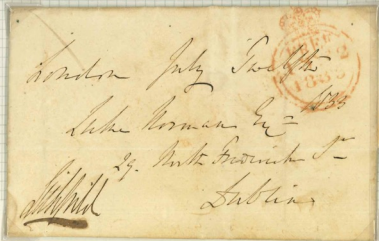 London July Twelfth
1833
Luke Norman Esqr
29. North Frederick St
Dublin